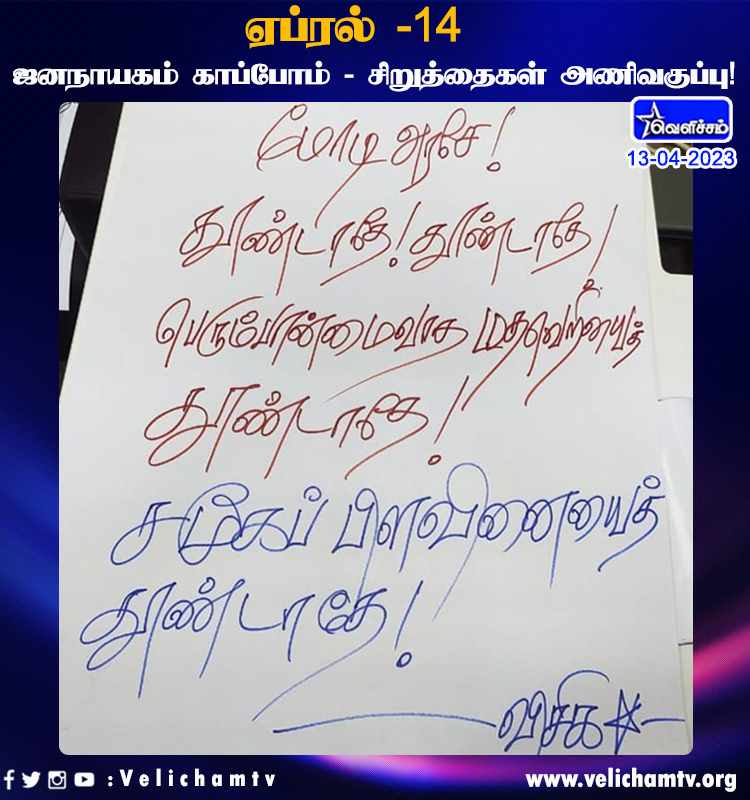 ஏப்ரல் -14
ஜனநாயகம் காப்போம் - சிறுத்தைகள் அணிவகுப்பு!
வெளிச்சம்
13-04-2023
மோடி அரசே!
தூண்டாதே! தூண்டாதே!
பெரும்பான்மைவாத மதவெறியைத்
தூண்டாதே!
சமூகப் பிளவினையைத்
தூண்டாதே!
விசிக
:Velichamtv
www.velichamtv.org